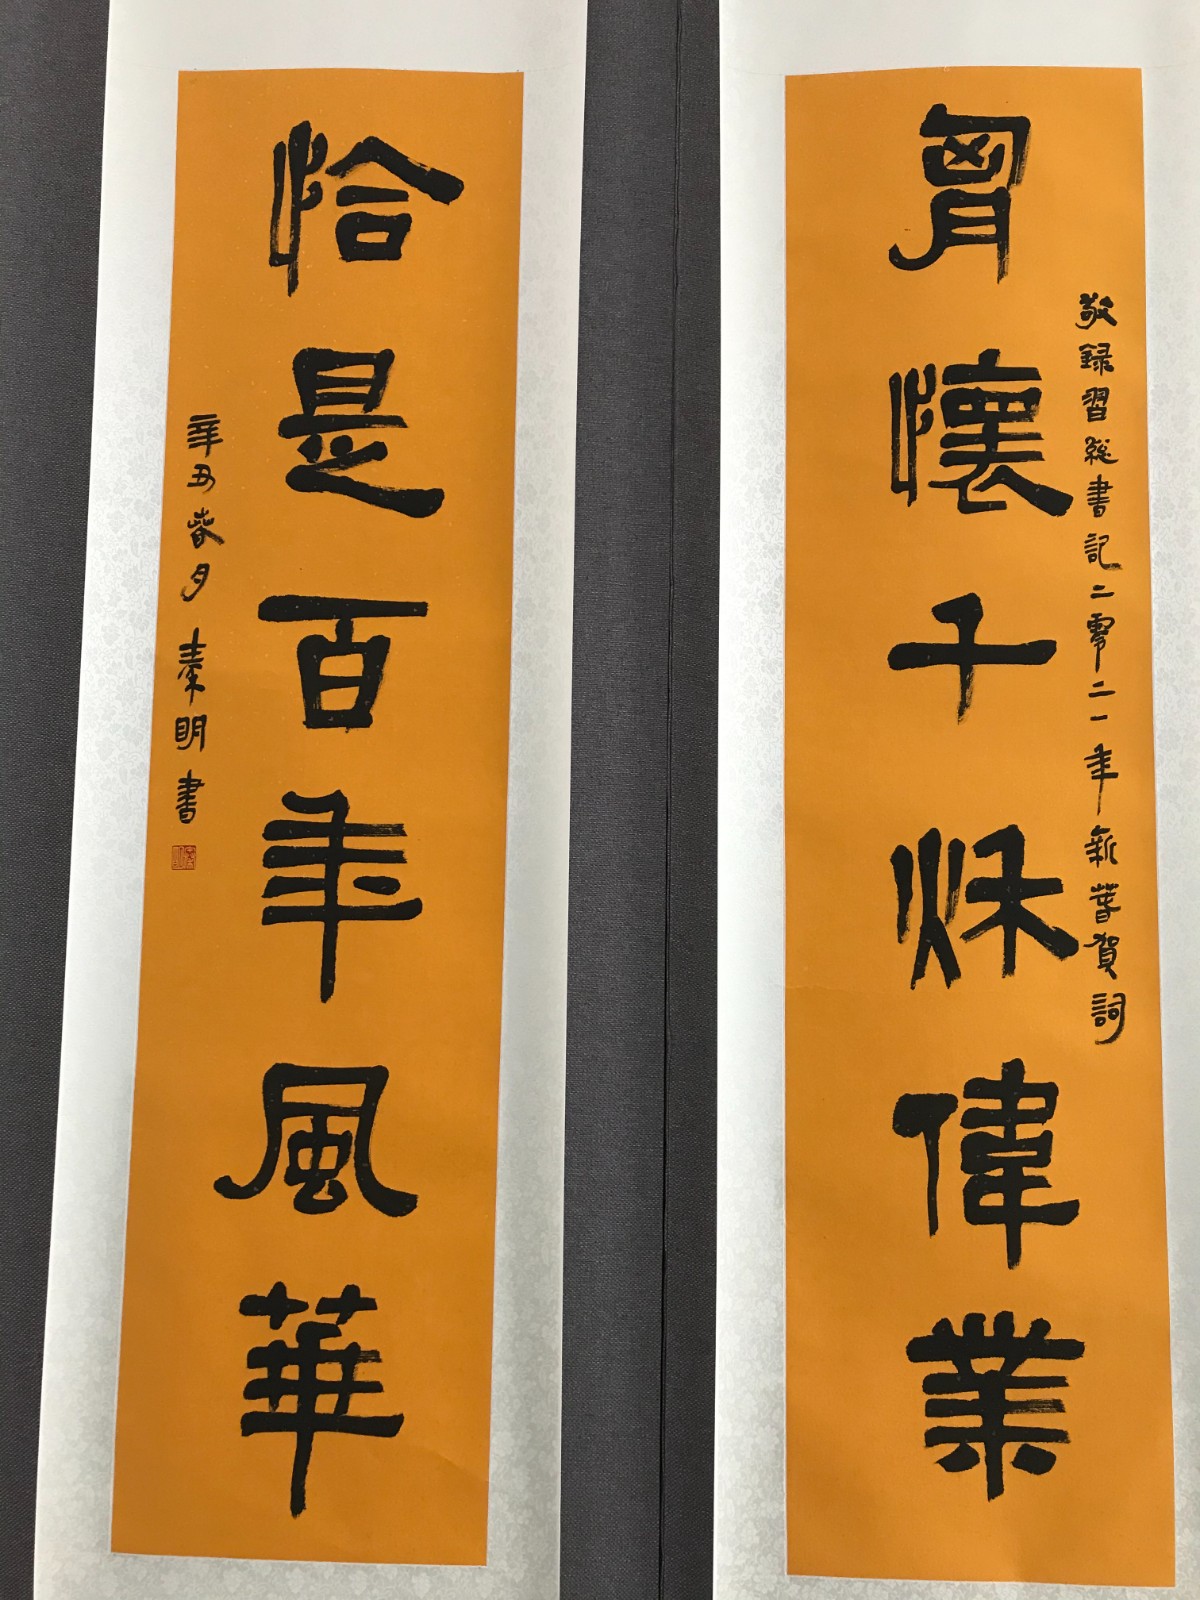 胷懷千秌偉業
敬録習総書記二零二一年新春賀詞
恰是百年風華
辛丑春月秦明書